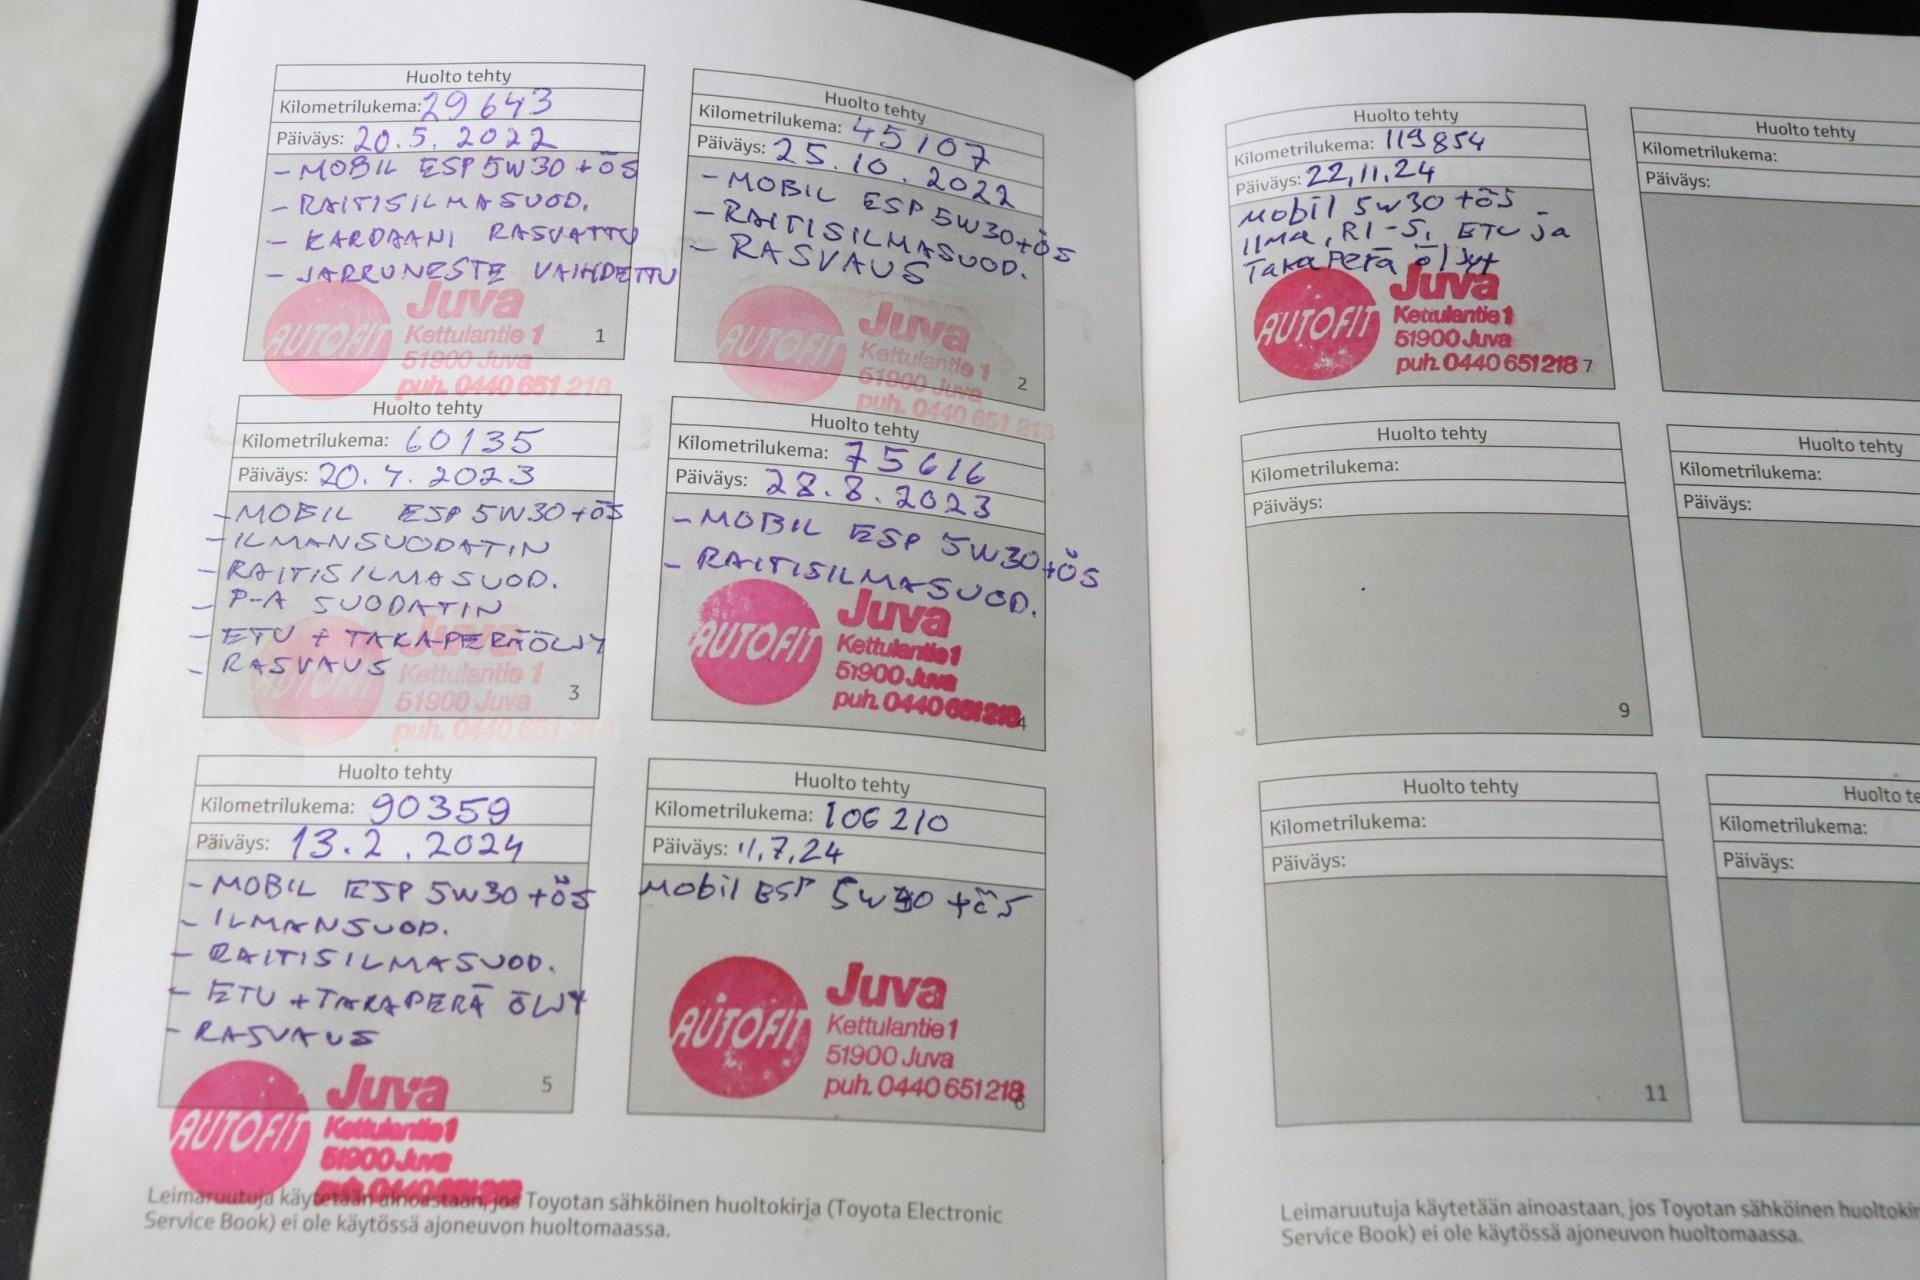 Huolto tehty
Kilometrilukema: 29643
Päiväys: 20.5.2022
- MOBIL ESP 5W30 + ÖS
- RAITISILMASUOD.
- KARDAANI RASVATTU
- JARRUNESTE VAIHDETTU
AUTOFIT
Juva
Kettulantie 1
51900 Juva
puh. 0440 651 218
1
Huolto tehty
Kilometrilukema: 45107
Päiväys: 25.10.2022
- MOBIL ESP 5W30 + ÖS
- RAITISILMASUOD.
- RASVAUS
AUTOFIT
Juva
Kettulantie 1
51900 Juva
puh. 0440 651 218
2
Huolto tehty
Kilometrilukema: 60135
Päiväys: 20.4.2023
- MOBIL ESP 5W30 + ÖS
- ILMANSUODATIN
- RAITISILMASUOD.
- P-A SUODATIN
- ETU + TAKAPERÄÖLJY
- RASVAUS
AUTOFIT
Juva
Kettulantie 1
51900 Juva
puh. 0440 651 218
3
Huolto tehty
Kilometrilukema: 75616
Päiväys: 28.8.2023
- MOBIL ESP 5W30 + ÖS
- RAITISILMASUOD.
AUTOFIT
Juva
Kettulantie 1
51900 Juva
puh. 0440 651 218
4
Huolto tehty
Kilometrilukema: 90359
Päiväys: 13.2.2024
- MOBIL ESP 5W30 + ÖS
- ILMANSUOD.
- RAITISILMASUOD.
- ETU + TAKAPERÄ ÖLJY
- RASVAUS
5
AUTOFIT
Juva
Kettulantie 1
51900 Juva
puh. 0440 651 218
Huolto tehty
Kilometrilukema: 106210
Päiväys: 11,7,24
Mobil ESP 5w30 + ÖS
AUTOFIT
Juva
Kettulantie 1
51900 Juva
puh. 0440 651 218
6
Leimaruutuja käytetään ainoastaan, jos Toyotan sähköinen huoltokirja (Toyota Electronic
Service Book) ei ole käytössä ajoneuvon huoltomaassa.
Huolto tehty
Kilometrilukema: 119854
Päiväys: 22,11,24
Mobil 5w30 + ÖS
ilma, RI-S, ETU ja
Takaperä öljyt
AUTOFIT
Juva
Kettulantie 1
51900 Juva
puh. 0440 651 218
7
Huolto tehty
Kilometrilukema:
Päiväys:
Huolto tehty
Kilometrilukema:
Päiväys:
9
Huolto tehty
Kilometrilukema:
Päiväys:
Huolto tehty
Kilometrilukema:
Päiväys:
11
Huolto te
Kilometrilukema:
Päiväys:
Leimaruutuja käytetään ainoastaan, jos Toyotan sähköinen huoltokir
Service Book) ei ole käytössä ajoneuvon huoltomaassa.